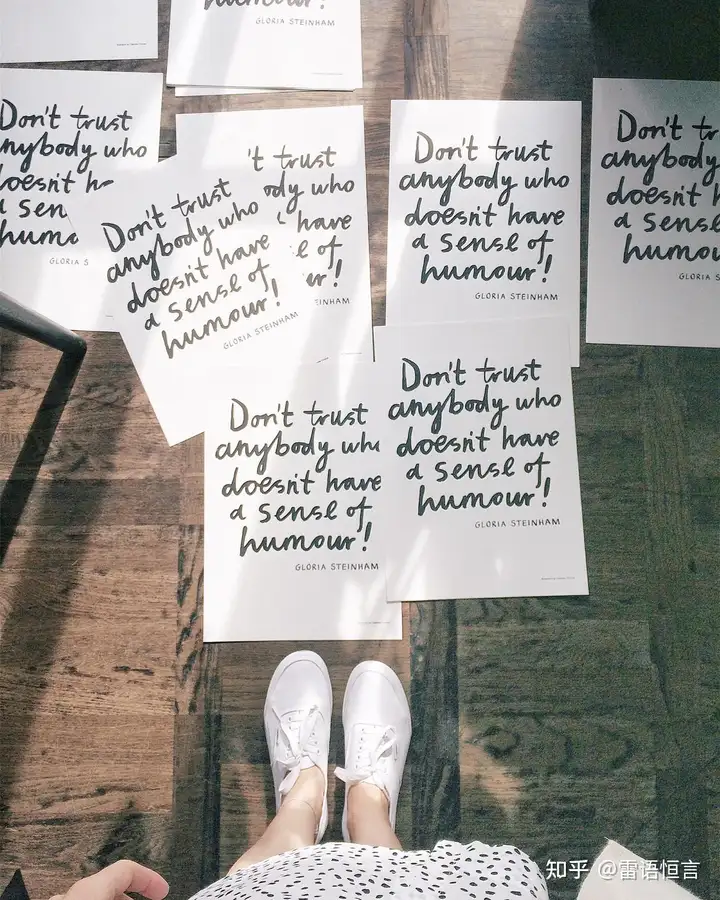 humour!
GLORIA STEINHAM
Don't trust
nybody who
doesn't h
a sen
hum
GLORIA S
't trust
ody who
have
of
ur!
EINHAM
Don't trust
anybody who
doesn't have
a sense of
humour!
GLORIA STEINHAM
Don't trust
anybody who
doesn't have
a sense of
humour!
GLORIA STEINHAM
Don't tr
anybody
doesn't h
a sens
humou
GLORIA S
Don't trust
anybody who
doesn't have
a sense of
humour!
GLORIA STEINHAM
Don't trust
anybody who
doesn't have
a sense of
humour!
GLORIA STEINHAM
知乎 @雷语恒言